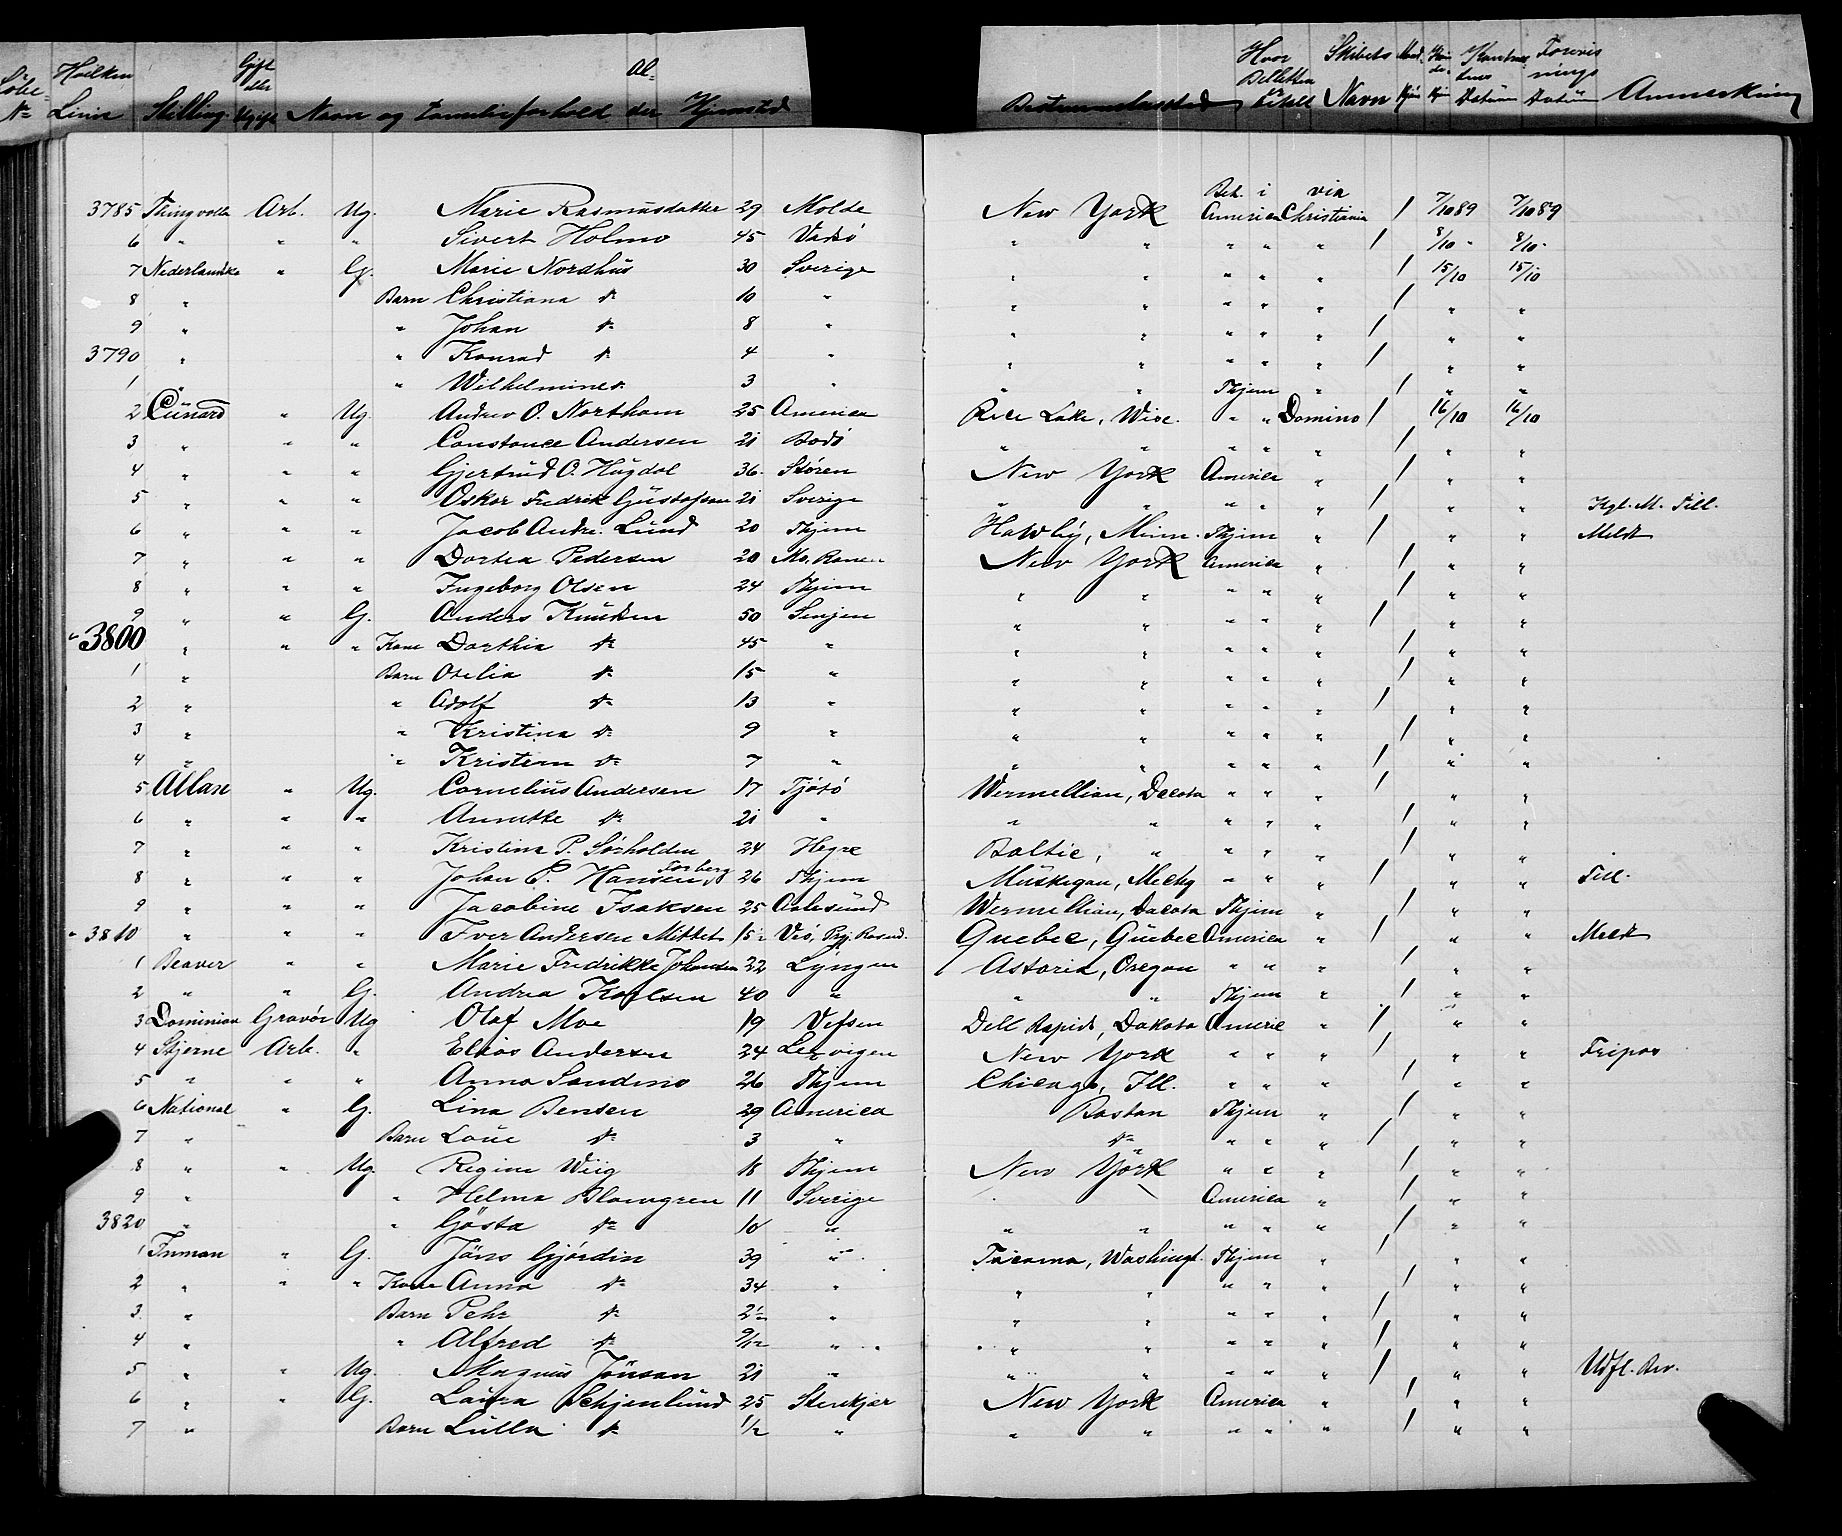 Löbe- No Hvilken Linie Stilling Gift eller Ugift Navn og familieforhold Al- der Hjemsted Bestemmelsessted Hvor Billetten er betalt Skibets Navn Mand- kjøn Kvin- de- kjøn Kontrak- tens Datum Forevis- nings Datum Anmerkning
3785 Thingvalla Arb. Ug. Marie Rasmusdatter 29 Molde New York Bet. i America via Christiania / 7/10 89 7/10 89
6 " " " Sivert Holmo 45 Vadsö " " " " " / 8/10 " 8/10 "
7 Nederlandske " G. Marie Nordhus 30 Sverige " " " " " / 15/10 15/10
8 " Barn Christiana do 10 " " " " " " / " "
9 " " Johan do 8 " " " " " " / " "
3790 " " Konrad do 4 " " " " " " / " "
1 " " Wilhelmine do 3 " " " Thjem " / " "
2 Cunard " Ug. Andrew O. Northam 25 America Rice Lake, Wisc. " " Domino / 16/10 16/10
3 " " " Constance Andersen 21 Bodö " " " " " / " "
4 " " " Gjertrud O. Hugdal 36 Støren New York America " / " "
5 " " " Oskar Fredrik Gustafsson 21 Sverige " " " " " / " " Kgl. M. Till.
6 " " " Jacob Andr. Lund 20 Thjem Hawley, Minn. Thjem " / " " Meldt
7 " " " Dortea Pedersen 20 Mo, Ranen New York America " / " "
8 " " " Ingeborg Olsen 24 Thjem " " " " " / " "
9 " " G. Anders Knudsen 50 Senjen " " " " " / " "
3800 " " " Kone Dorthia do 45 " " " " " " / " "
1 " Barn Otelia do 15 " " " " " " / " "
2 " " Adolf do 13 " " " " " " / " "
3 " " Kristina do 9 " " " " " " / " "
4 " " Kristern do 7 " " " " " " / " "
5 Allan " Ug. Cornelius Andersen 17 Tjötö Wermellian, Dacota " " " / " "
6 " " " Annette do 21 " " " " " " / " "
7 " " " Kristina P. Sørholden 24 Hegre Baltic, " " " " / " "
8 " " " Johan C. Hansen Torberg 26 Thjem Muskegan, Mechg " " " / " " Till.
9 " " " Jacobine Isaksen 25 Aalesund Wermellian, Dacota Thjem " / " "
3810 " " " Iver Andersen Mittet 15 Veö, Pgj. Romsd. Quebec, Quebec America " / " " Meldt
1 Beaver " " Marie Fredrikke Johansen 22 Lyngen Astoria, Oregon " " " / " "
2 " " G. Andrea Karlsen 40 " " " Thjem " / " "
3 Dominion Gravör Ug Olaf Moe 19 Vefsen Dell Rapids, Dakota Americ " / " "
4 Stjerne Arb. " Elias Andersen 24 Lervigen New York " " " / " " Fripas
5 " " " Anna Sandmo 26 Thjem Chicago, Ill. " " " / " "
6 National " G. Lina Bensen 29 America Bostan Thjem " / " "
7 " Barn Loue do 3 " do " " " / " "
8 " " Ug. Regine Wiig 18 Thjem New York " " " / " "
9 " " Helma Blomgren 11 Sverige " " America " / " "
3820 " " Gösta do 10 " " " " " " / " "
1 Inman " G. Jöns Gjördin 39 " Tacoma, Washingt. Thjem " / " "
2 " " " Kone Anna do 34 " " " " " " / " "
3 " Barn Pehr do 2½ " " " " " " / " "
4 " " Alfred do 9/12 " " " " " " / " "
5 " " Ug. Magnus Jönsan 21 " " " " " " / " " Udfl. Bev.
6 " " G. Laura Schjenlund 25 Stenkjær New York America " / " "
7 " Barn Lulla do ½ " " " " " " / " "